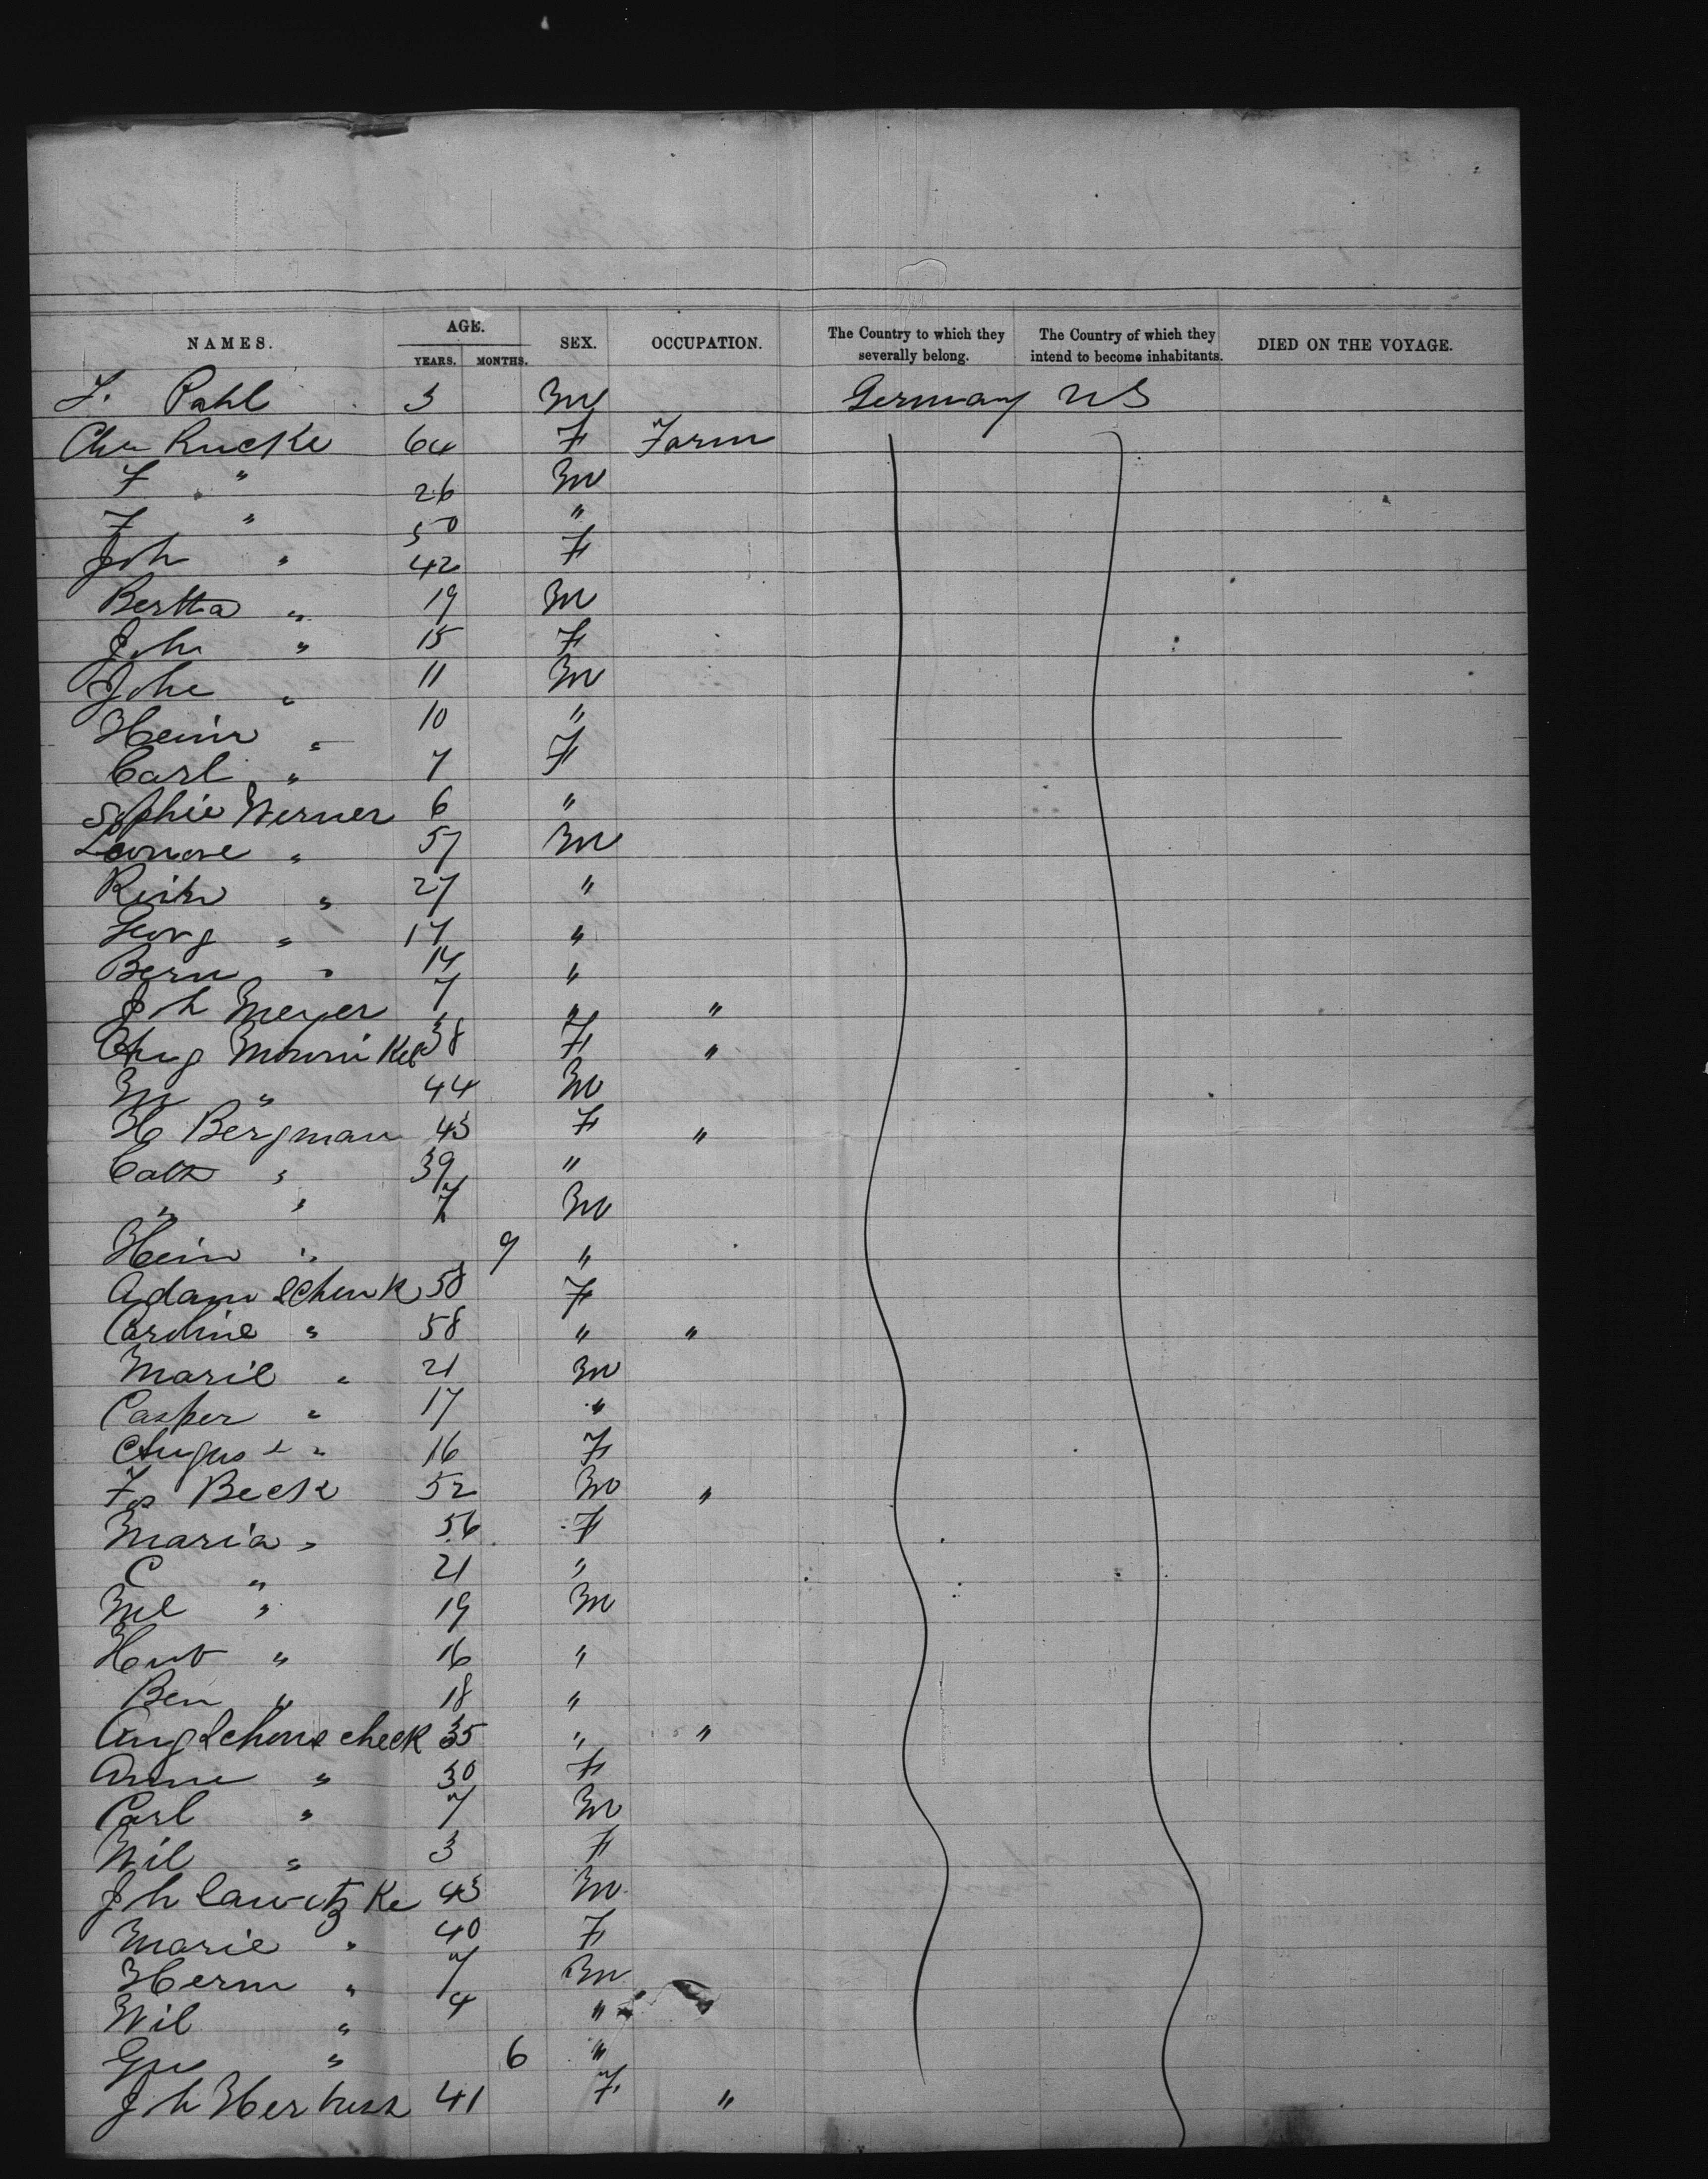 NAMES. AGE. YEARS. MONTHS. SEX. OCCUPATION. The Country to which they severally belong. The Country of which they intend to become inhabitants. DIED ON THE VOYAGE.
F. Pahl 3 M Germany US
Chr Rucke 64 F Farm
F " 26 M
F " 50 "
Joh " 42 F
Bertha " 19 M
Joh " 15 F
Johe " 11 M
Heinr " 10 "
Carl " 7 F
Sophie Werner 6 "
" 57 M
" 27 "
Georg " 17 "
Bern " 14 "
Joh Meyer 7 " "
Aug 38 F "
M " 44 M
H Bergman 43 F "
Cath " 39 "
" " 7 M
Hein " 9 "
Adam Schenk 58 F
Caroline " 58 " "
Marie " 21 M
Casper " 17 "
August " 16 F
Fr Beck 52 M "
Maria " 56 F
C " 21 "
" 19 M
" 16 "
Ben " 18 "
Aug Schonscheck 35 " "
Anne " 30 F
Carl " 7 M
Wil " 3 F
Joh Lawitzke 43 M
Marie " 40 F
Herm " 7 M
Wil " 4 "
" 6 "
Joh 41 F "